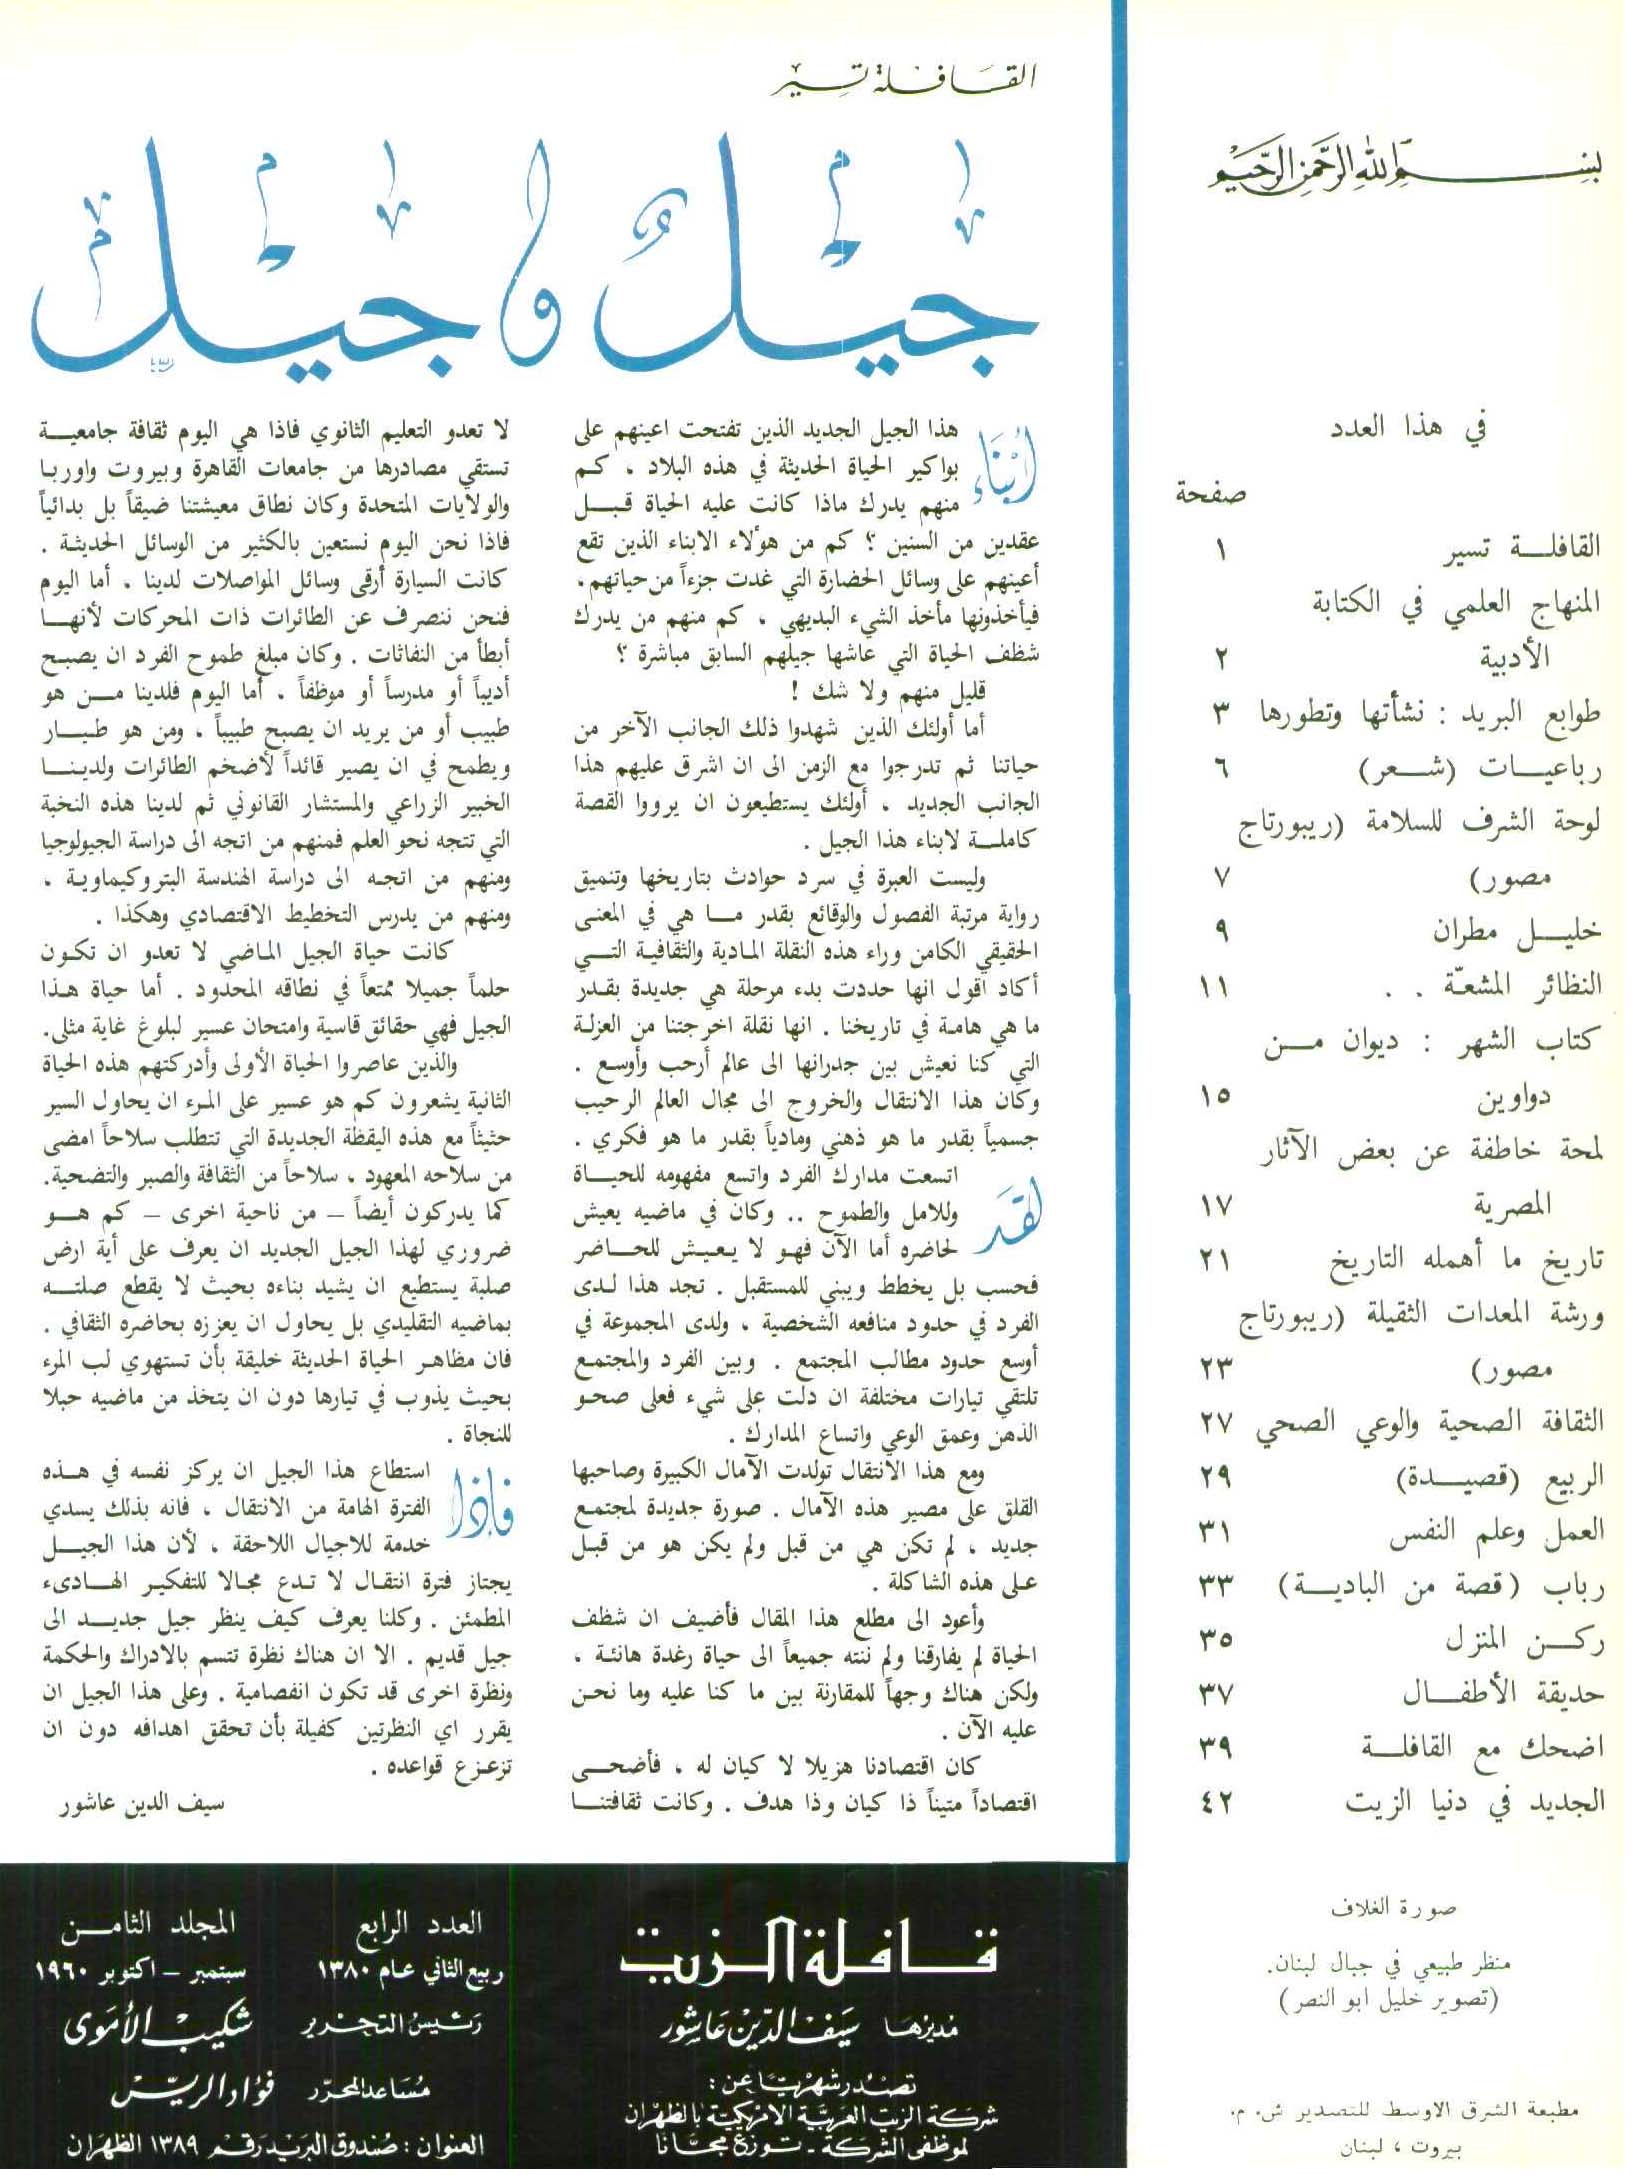 بسم الله الرحمن الرحيم
في هذا العدد
صفحة
القافلــة تسير ١
المنهاج العلمي في الكتابة
الأدبية ٢
طوابع البريد : نشأتها وتطورها ٣
رباعيــات (شــعر) ٦
لوحة الشرف للسلامة (ريبورتاج
مصور) ٧
خليــل مطران ٩
النظائر المشعّة . . ١١
كتاب الشهر : ديوان مــن
دواوين ١٥
لمحة خاطفة عن بعض الآثار
المصرية ١٧
تاريخ ما أهمله التاريخ ٢١
ورشة المعدات الثقيلة (ريبورتاج
مصور) ٢٣
الثقافة الصحية والوعي الصحي ٢٧
الربيع (قصيــدة) ٢٩
العمل وعلم النفس ٣١
رباب (قصة من الباديــة) ٣٣
ركــن المنزل ٣٥
حديقة الأطفــال ٣٧
اضحك مع القافلــة ٣٩
الجديد في دنيا الزيت ٤٢
صورة الغلاف
منظر طبيعي في جبال لبنان.
(تصوير خليل ابو النصر)
مطبعة الشرق الاوسط للتصدير ش. م.
بيروت ، لبنان
القافلة تسير
جيلٌ وجيل
أبناء هذا الجيل الجديد الذين تفتحت اعينهم على
بواكير الحياة الحديثة في هذه البلاد ، كــم
منهم يدرك ماذا كانت عليه الحياة قبــل
عقدين من السنين ؟ كم من هؤلاء الابناء الذين تقع
أعينهم على وسائل الحضارة التي غدت جزءاً من حياتهم،
فيأخذونها مأخذ الشيء البديهي ، كم منهم من يدرك
شظف الحياة التي عاشها جيلهم السابق مباشرة ؟
قليل منهم ولا شك !
أما أولئك الذين شهدوا ذلك الجانب الآخر من
حياتنا ثم تدرجوا مع الزمن الى ان اشرق عليهم هذا
الجانب الجديد ، أولئك يستطيعون ان يرووا القصة
كاملــة لابناء هذا الجيل .
وليست العبرة في سرد حوادث بتاريخها وتنميق
رواية مرتبة الفصول والوقائع بقدر مــا هي في المعنى
الحقيقي الكامن وراء هذه النقلة المادية والثقافية التــي
أكاد اقول انها حددت بدء مرحلة هي جديدة بقــدر
ما هي هامة في تاريخنا . انها نقلة اخرجتنا من العزلة
التي كنا نعيش بين جدرانها الى عالم أرحب وأوسع .
وكان هذا الانتقال والخروج الى مجال العالم الرحيب
جسمياً بقدر ما هو ذهني ومادياً بقدر ما هو فكري .
لقد اتسعت مدارك الفرد واتسع مفهومه للحيــاة
وللامل والطموح .. وكان في ماضيه يعيش
لحاضره أما الآن فهــو لا يـعـيـش للحــاضر
فحسب بل يخطط ويبني للمستقبل . تجد هذا لــدى
الفرد في حدود منافعه الشخصية ، ولدى المجموعة في
أوسع حدود مطالب المجتمع . وبين الفرد والمجتمـع
تلتقي تيارات مختلفة ان دلت على شيء فعلى صحـو
الذهن وعمق الوعي واتساع المدارك .
ومع هذا الانتقال تولدت الآمال الكبيرة وصاحبها
القلق على مصير هذه الآمال . صورة جديدة لمجتمـع
جديد ، لم تكن هي من قبل ولم يكن هو من قبــل
على هذه الشاكلة .
وأعود الى مطلع هذا المقال فأضيف ان شظف
الحياة لم يفارقنا ولم ننته جميعاً الى حياة رغدة هانئـة ،
ولكن هناك وجهاً للمقارنة بين ما كنا عليه وما نحـن
عليه الآن .
كان اقتصادنا هزيلا لا كيان له ، فأضحــى
اقتصاداً متيناً ذا كيان وذا هدف . وكانت ثقافتنــا
لا تعدو التعليم الثانوي فاذا هي اليوم ثقافة جامعيــة
تستقي مصادرها من جامعات القاهرة وبيروت واوربـا
والولايات المتحدة وكان نطاق معيشتنا ضيقاً بل بدائياً
فاذا نحن اليوم نستعين بالكثير من الوسائل الحديثـة .
كانت السيارة أرقى وسائل المواصلات لدينا ، أما اليوم
فنحن ننصرف عن الطائرات ذات المحركات لأنهــا
أبطأ من النفاثات . وكان مبلغ طموح الفرد ان يصبـح
أديباً أو مدرساً أو موظفاً ، أما اليوم فلدينا مــن هو
طبيب أو من يريد ان يصبح طبيباً ، ومن هو طـيـار
ويطمح في ان يصير قائداً لأضخم الطائرات ولدينــا
الخبير الزراعي والمستشار القانوني ثم لدينا هذه النخبة
التي تتجه نحو العلم فمنهم من اتجه الى دراسة الجيولوجيا
ومنهم من اتجـه الى دراسة الهندسة البتروكيماويـة ،
ومنهم من يدرس التخطيط الاقتصادي وهكذا .
كانت حياة الجيل المـاضي لا تعدو ان تكـون
حلماً جميلا ممتعاً في نطاقه المحدود . أما حياة هـذا
الجيل فهي حقائق قاسية وامتحان عسير لبلوغ غاية مثلى.
والذين عاصروا الحياة الأولى وأدركتهم هذه الحياة
الثانية يشعرون كم هو عسير على المـرء ان يحاول السير
حثيثاً مع هذه اليقظة الجديدة التي تتطلب سلاحاً امضى
من سلاحه المعهود ، سلاحاً من الثقافة والصبر والتضحية.
كما يدركون أيضاً – من ناحية اخرى – كم هــو
ضروري لهذا الجيل الجديد ان يعرف على أية ارض
صلبة يستطيع ان يشيد بناءه بحيث لا يقطع صلتــه
بماضيه التقليدي بل يحاول ان يعززه بحاضره الثقافي .
فان مظاهـر الحياة الحديثة خليقة بأن تستهوي لب المرء
بحيث يذوب في تيارها دون ان يتخذ من ماضيه حبلا
للنجاة .
فإذا استطاع هذا الجيل ان يركز نفسه في هــذه
الفترة الهامة من الانتقال ، فانه بذلك يسدي
خدمة للاجيال اللاحقة ، لأن هذا الجيــل
يجتاز فترة انتقال لا تـدع مجالا للتفكير الهـادىء
المطمئن . وكلنا يعرف كيف ينظر جيل جديــد الى
جيل قديم . الا ان هناك نظرة تتسم بالادراك والحكمة
ونظرة اخرى قد تكون انفصامية . وعلى هذا الجيل ان
يقرر اي النظرتين كفيلة بأن تحقق اهدافه دون ان
تزعـزع قواعده .
سيف الدين عاشور
قافلة الزيت
مديرها سيف الدين عاشور
تصدر شهريًا عن :
شركة الزيت العربية الامريكية بالظهران
لموظفي الشركة - توزع مجانا
العدد الرابع المجلد الثامــن
ربيع الثاني عام ١٣٨٠ سبتمبر – اكتوبر ١٩٦٠
رئيس التحرير شكيب الأموي
مساعد المحرر فؤاد الريس
العنوان : صندوق البريد رقم ١٣٨٩ الظهران